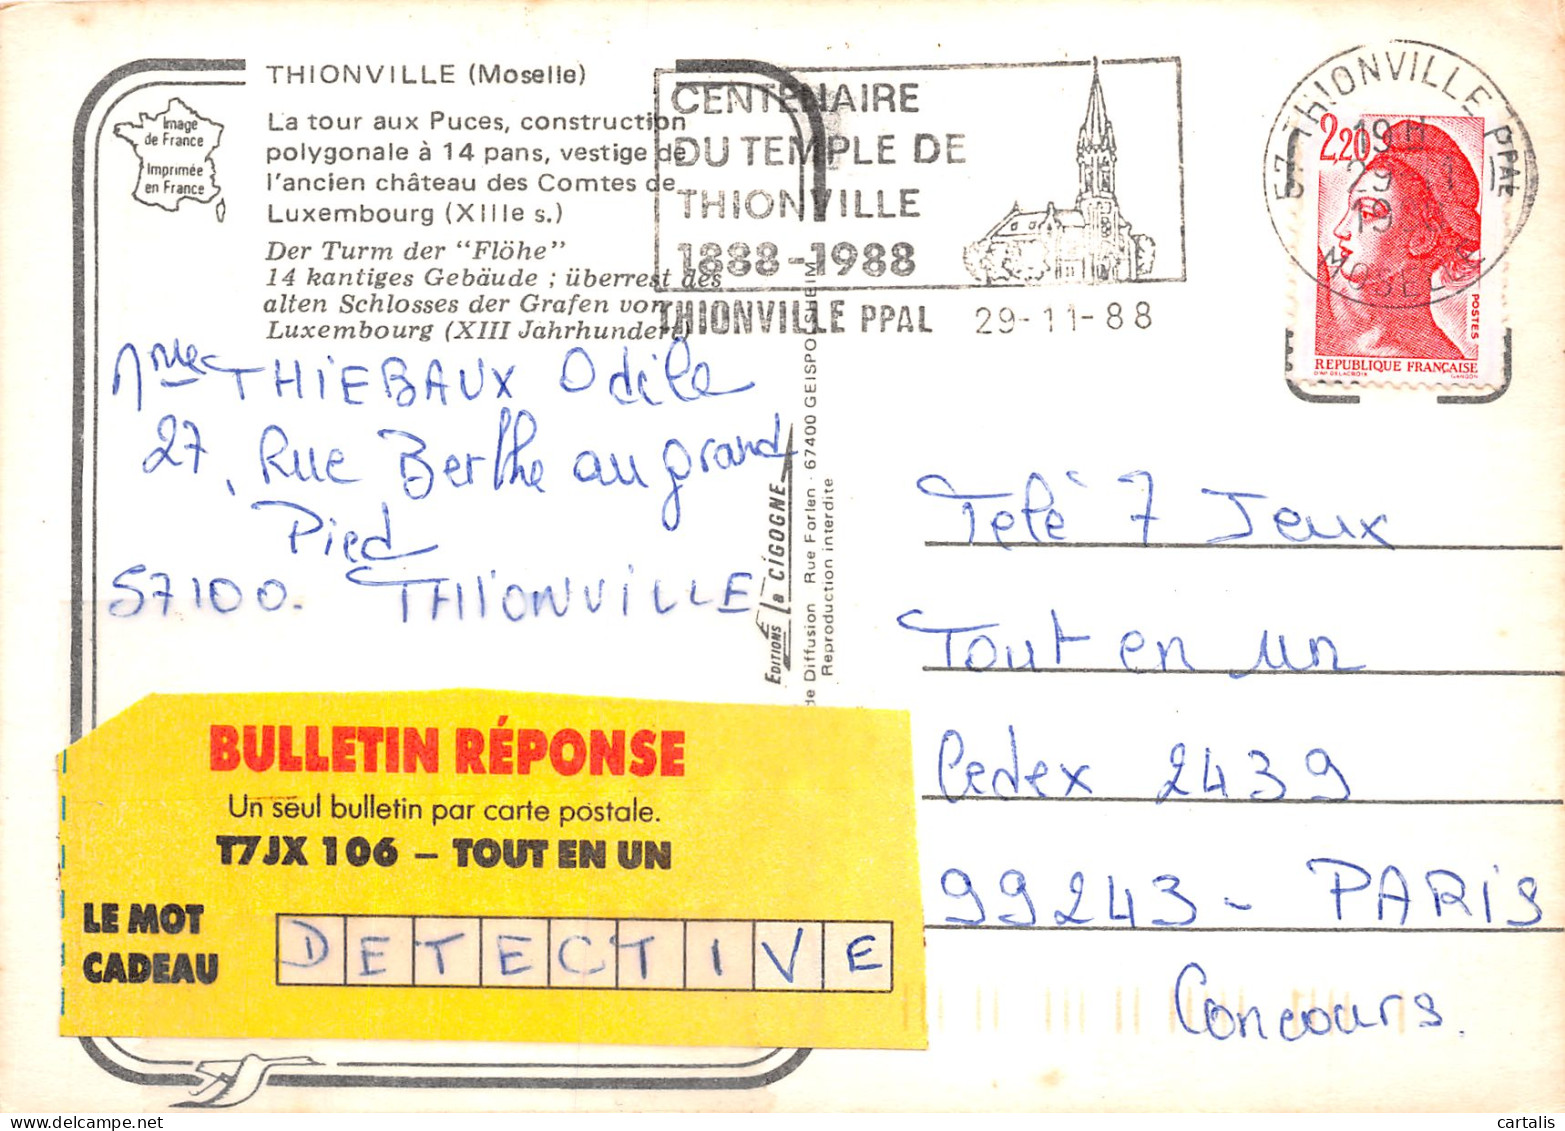 THIONVILLE (Moselle)
Image
de France
Imprimée
en France
La tour aux Puces, construction
polygonale à 14 pans, vestige de
l'ancien château des Comtes de
Luxembourg (XIIIe s.)
Der Turm der "Flöhe"
14 kantiges Gebäude ; überrest des
alten Schlosses der Grafen von
Luxembourg (XIII Jahrhundert)
CENTENAIRE
DU TEMPLE DE
THIONVILLE
1888-1988
THIONVILLE PPAL 29-11-88
57 THIONVILLE PPAL
19H
29
19
MOSELLE
2,20
POSTES
REPUBLIQUE FRANÇAISE
D'AP. DELACROIX GANDON
Mme THIEBAUX Odile
27, Rue Berthe au grand
Pied
57100. THIONVILLE
EDITIONS la CIGOGNE
de Diffusion Rue Forlen - 67400 GEISPOLSHEIM
Reproduction interdite
Telé 7 Jeux
Tout en un
Cedex 2439
99243 - PARIS
Concours.
BULLETIN RÉPONSE
Un seul bulletin par carte postale.
T7JX 106 – TOUT EN UN
LE MOT
CADEAU
DETECTIVE
www.delcampe.net
cartalis